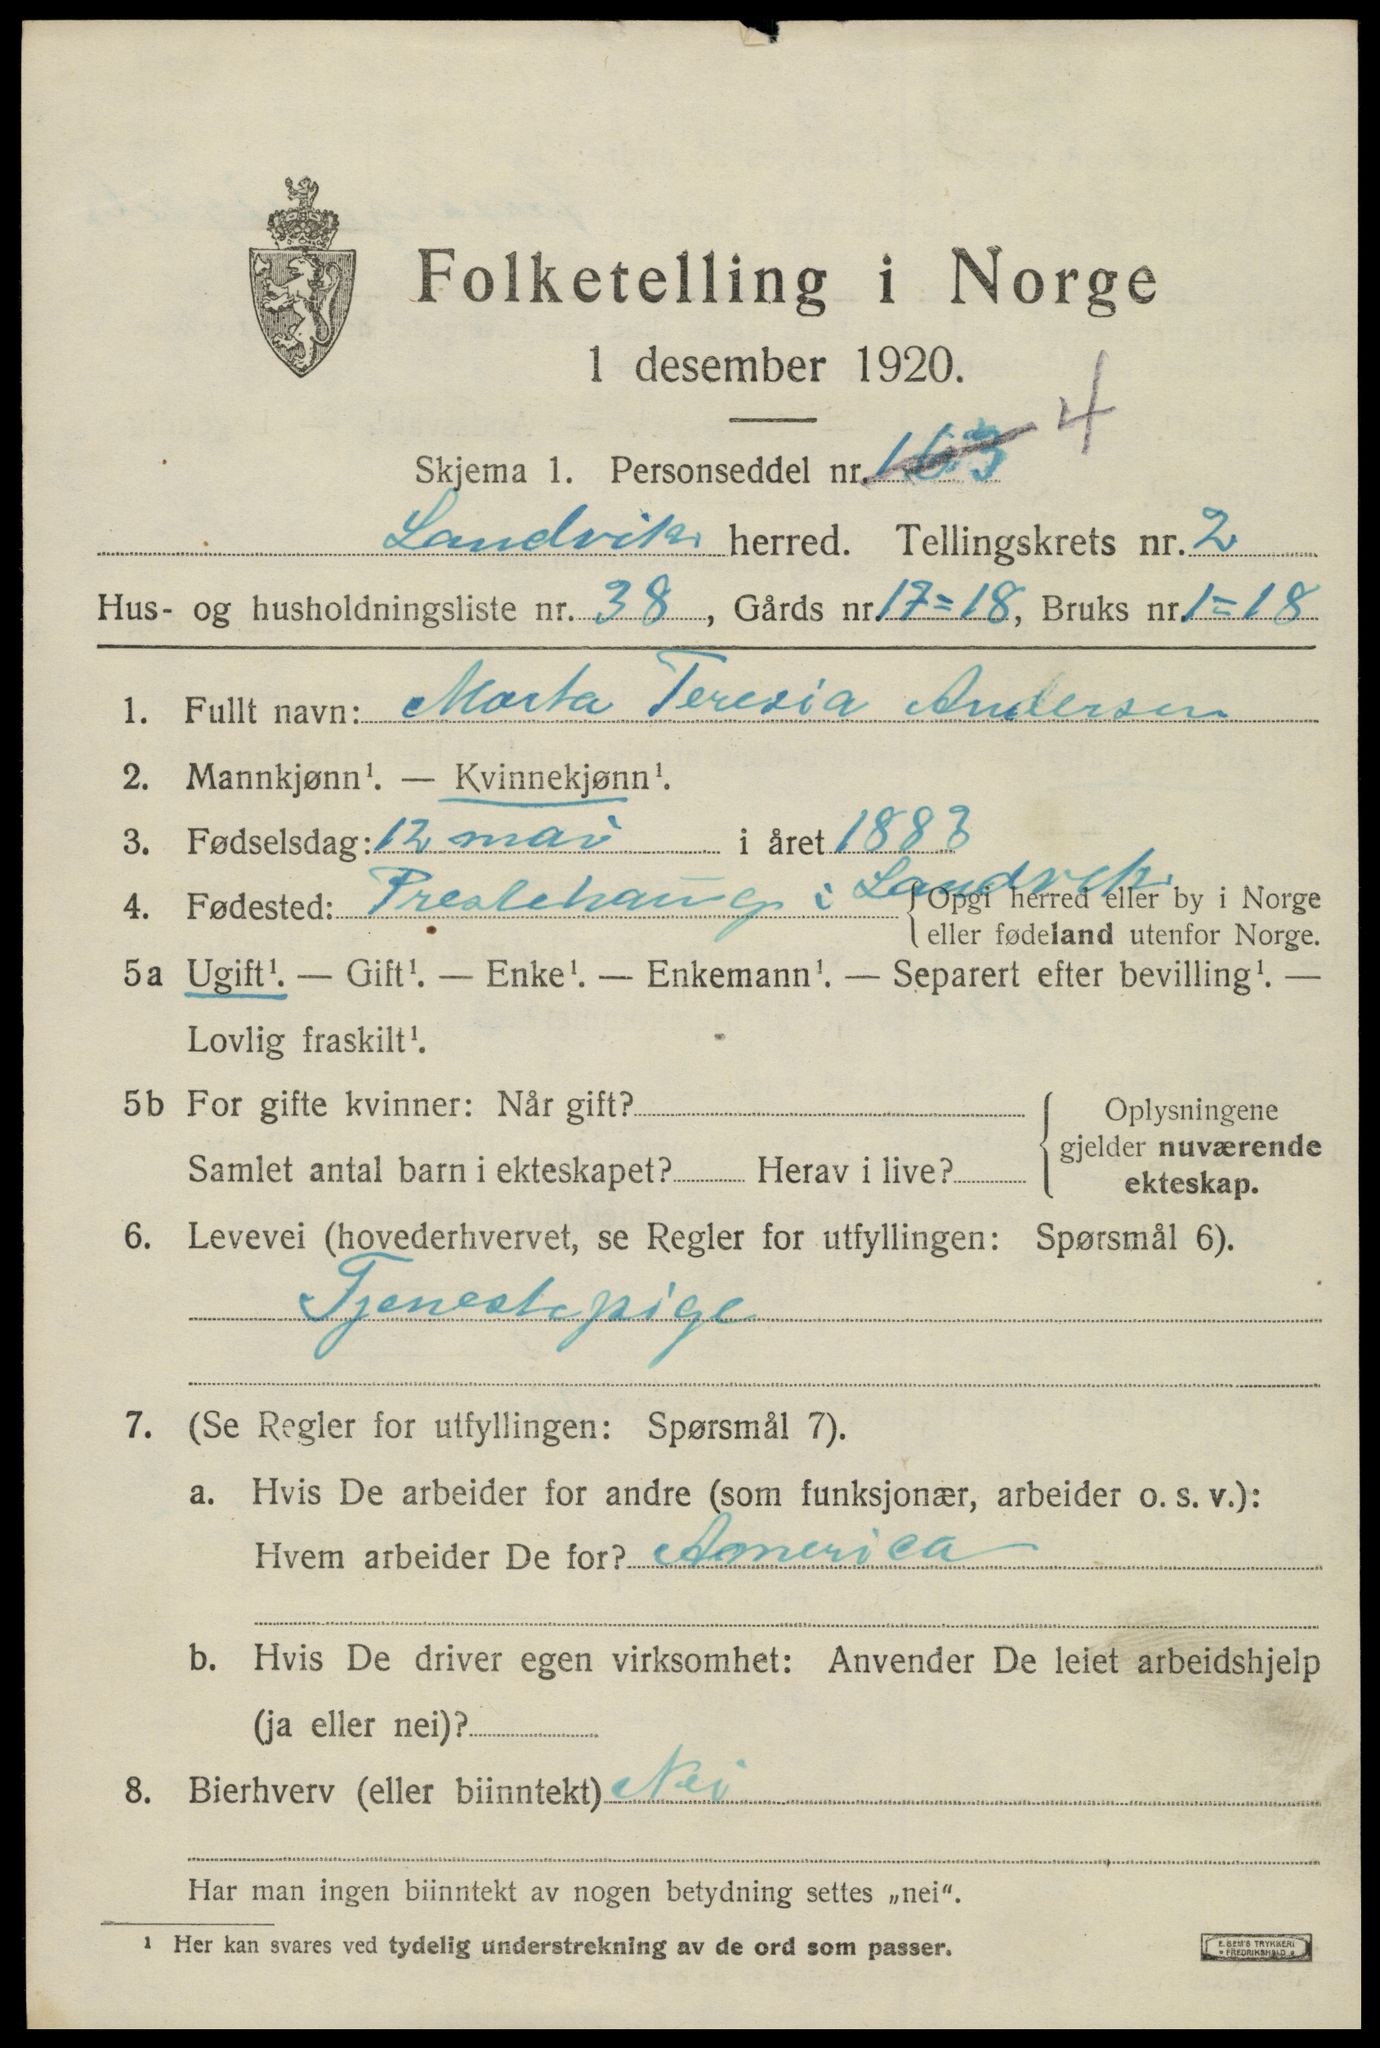 Folketelling i Norge
1 desember 1920.
Skjema 1. Personseddel nr. 163 4
Landvik herred. Tellingskrets nr. 2
Hus- og husholdningsliste nr. 38, Gårds nr. 17=18, Bruks nr. 1=18
1. Fullt navn: Marta Teresia Andersen
2. Mannkjønn¹. — Kvinnekjønn¹.
3. Fødselsdag: 12 mai i året 1883
4. Fødested: Prestehaug i Landvik {Opgi herred eller by i Norge
eller fødeland utenfor Norge.
5a Ugift¹. — Gift¹. — Enke¹. — Enkemann¹. — Separert efter bevilling¹. —
Lovlig fraskilt¹.
5b For gifte kvinner: Når gift?
Samlet antal barn i ekteskapet? Herav i live?
Oplysningene
gjelder nuværende
ekteskap.
6. Levevei (hovederhvervet, se Regler for utfyllingen: Spørsmål 6).
Tjenestepige
7. (Se Regler for utfyllingen: Spørsmål 7).
a. Hvis De arbeider for andre (som funksjonær, arbeider o. s. v.):
Hvem arbeider De for? America
b. Hvis De driver egen virksomhet: Anvender De leiet arbeidshjelp
(ja eller nei)?
8. Bierhverv (eller biinntekt) Nei
Har man ingen biinntekt av nogen betydning settes „nei“.
¹ Her kan svares ved tydelig understrekning av de ord som passer.
E. SEM'S TRYKKERI
FREDRIKSHALD